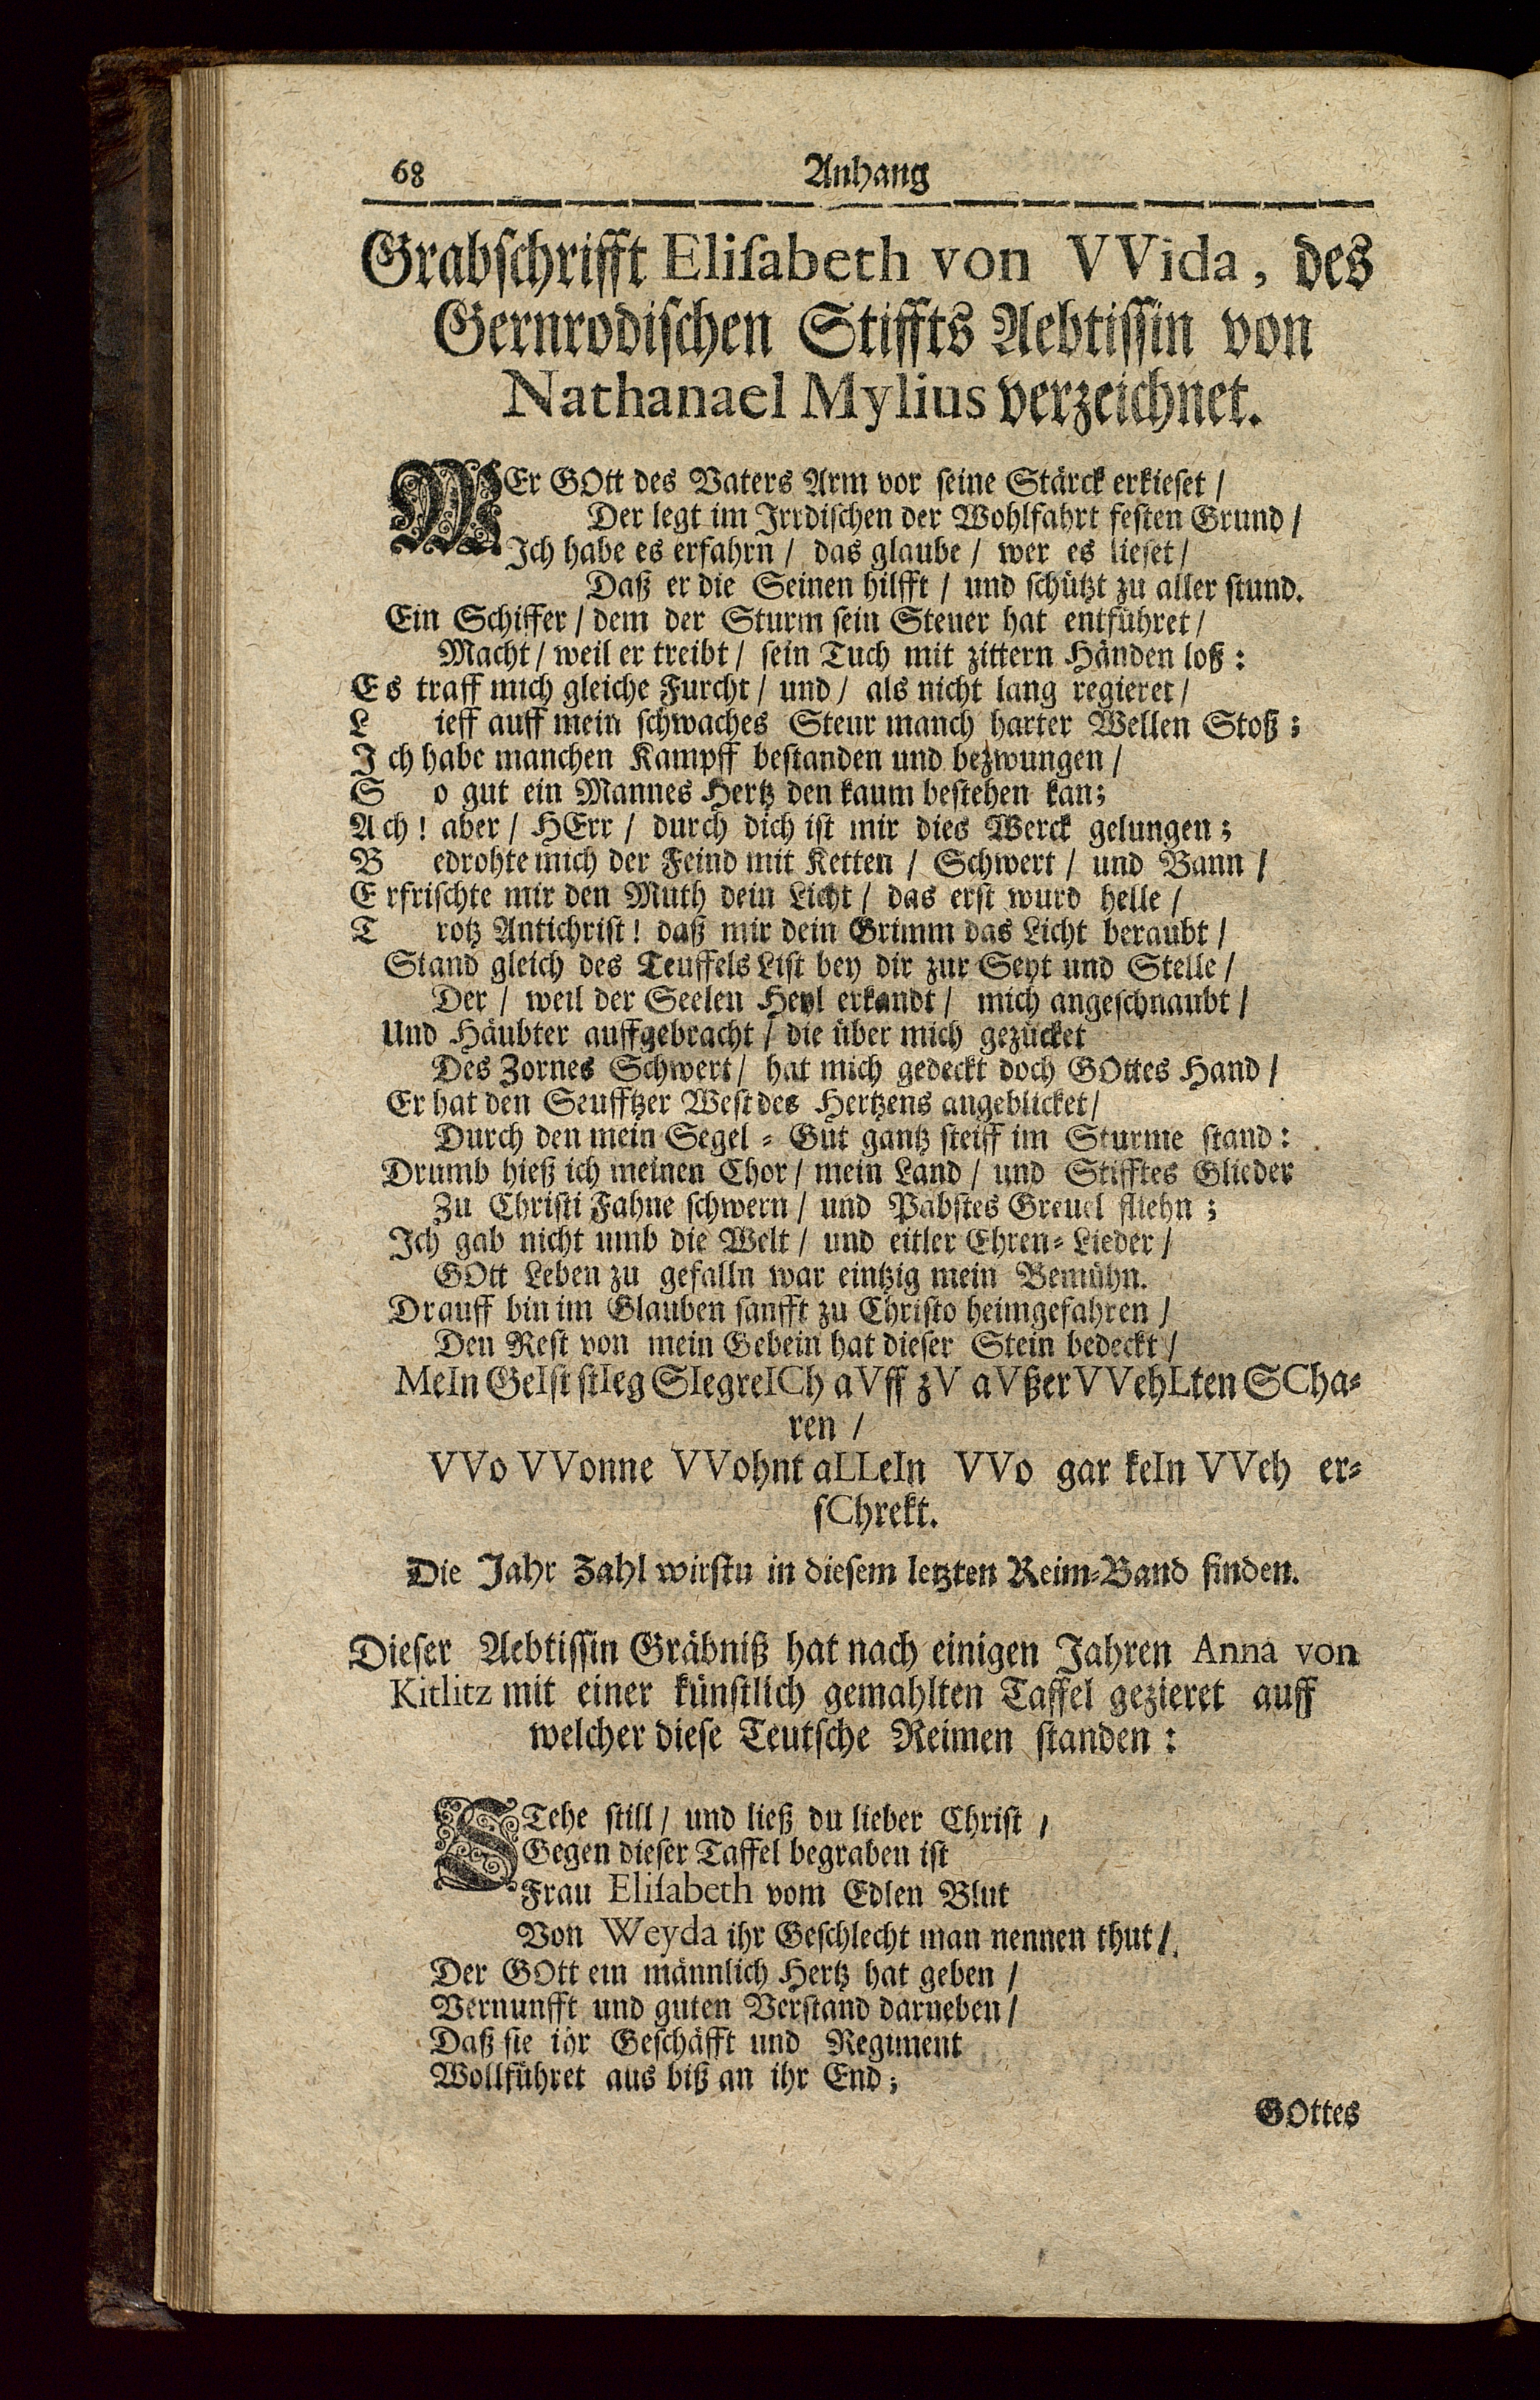 68 Anhang
Grabschrifft Eliſabeth von VVida, des
Gernrodiſchen Stiffts Aebtiſſin von
Nathanael Mylius verzeichnet.
WEr GOtt des Vaters Arm vor ſeine Stärck erkieſet /
Der legt im Irrdiſchen der Wohlfahrt feſten Grund /
Ich habe es erfahrn / das glaube / wer es lieſet /
Daß er die Seinen hilfft / und ſchützt zu aller ſtund.
Ein Schiffer / dem der Sturm ſein Steuer hat entführet /
Macht / weil er treibt / ſein Tuch mit zittern Händen loß :
Es traff mich gleiche Furcht / und / als nicht lang regieret /
L ieff auff mein ſchwaches Steur manch harter Wellen Stoß ;
I ch habe manchen Kampff beſtanden und bezwungen /
S o gut ein Mannes Hertz den kaum beſtehen kan;
Ach ! aber / HErr / durch dich iſt mir dies Werck gelungen ;
B edrohte mich der Feind mit Ketten / Schwert / und Bann /
E rfriſchte mir den Muth dein Licht / das erſt wurd helle /
T rotz Antichriſt ! daß mir dein Grimm das Licht beraubt /
Stand gleich des Teuffels Liſt bey dir zur Seyt und Stelle /
Der / weil der Seelen Heyl erkandt / mich angeſchnaubt /
Und Häubter auffgebracht / die über mich gezücket
Des Zornes Schwert / hat mich gedeckt doch GOttes Hand /
Er hat den Seufftzer Weſt des Hertzens angeblicket /
Durch den mein Segel = Gut gantz ſteiff im Sturme ſtand :
Drumb hieß ich meinen Chor / mein Land / und Stifftes Glieder
Zu Chriſti Fahne ſchwern / und Pabſtes Greuel fliehn ;
Ich gab nicht umb die Welt / und eitler Ehren= Lieder /
GOtt Leben zu gefalln war eintzig mein Bemühn.
Drauff bin im Glauben ſanfft zu Chriſto heimgefahren /
Den Reſt von mein Gebein hat dieſer Stein bedeckt /
MeIn GeIſt ſtIeg SIegreICh aVff zV aVßerVVehLten SCha=
ren /
VVo VVonne VVohnt aLLeIn VVo gar keIn VVeh er=
ſChrekt.
Die Jahr Zahl wirſtu in dieſem letzten Reim=Band finden.
Dieſer Aebtiſſin Gräbniß hat nach einigen Jahren Anna von
Kitlitz mit einer künſtlich gemahlten Taffel gezieret auff
welcher dieſe Teutſche Reimen ſtanden :
STehe ſtill / und ließ du lieber Chriſt /
Gegen dieſer Taffel begraben iſt
Frau Eliſabeth vom Edlen Blut
Von Weyda ihr Geſchlecht man nennen thut /
Der GOtt ein männlich Hertz hat geben /
Vernunfft und guten Verſtand darneben /
Daß ſie ihr Geſchäfft und Regiment
Wollführet aus biß an ihr End ;
GOttes